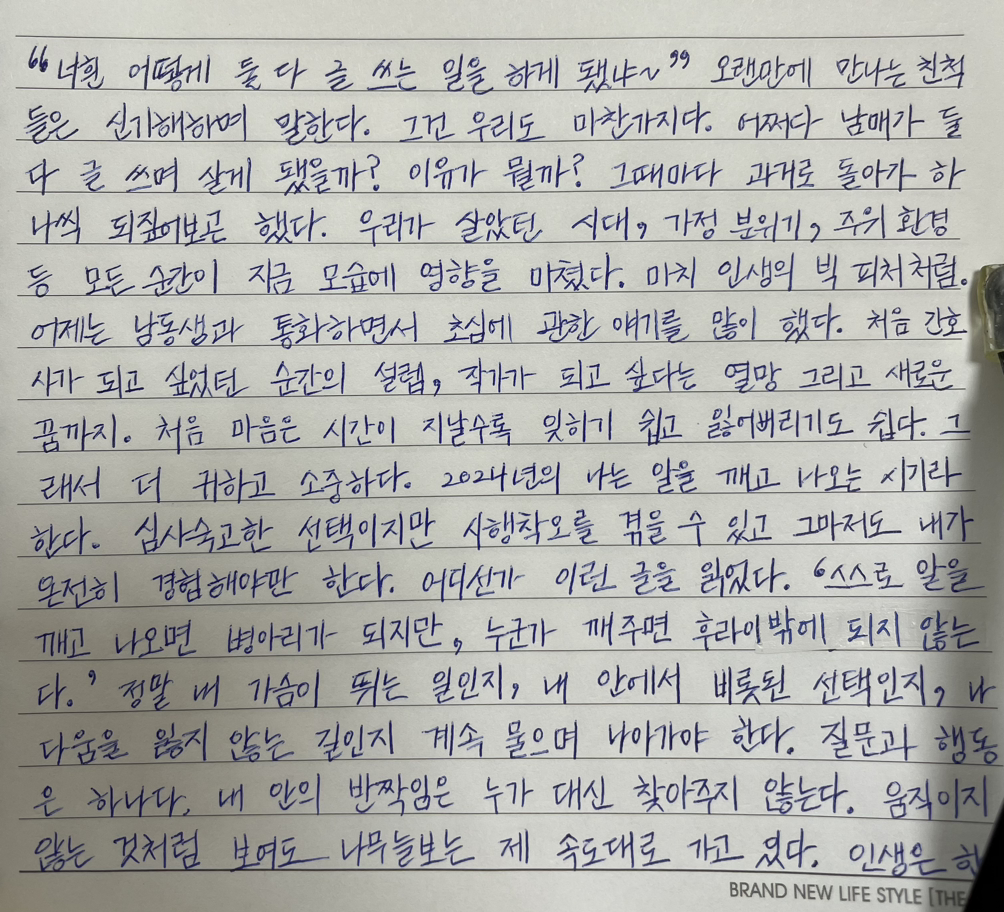 “너흰 어떻게 둘 다 글 쓰는 일을 하게 됐냐~” 오랜만에 만나는 친척
들은 신기해하며 말한다. 그건 우리도 마찬가지다. 어쩌다 남매가 둘
다 글 쓰며 살게 됐을까? 이유가 뭘까? 그때마다 과거로 돌아가 하
나씩 되짚어보곤 했다. 우리가 살았던 시대, 가정 분위기, 주위 환경
등 모든 순간이 지금 모습에 영향을 미쳤다. 마치 인생의 빅 피처처럼.
어제는 남동생과 통화하면서 초심에 관한 얘기를 많이 했다. 처음 간호
사가 되고 싶었던 순간의 설렘, 작가가 되고 싶다는 열망 그리고 새로운
꿈까지. 처음 마음은 시간이 지날수록 잊히기 쉽고 잃어버리기도 쉽다. 그
래서 더 귀하고 소중하다. 2024년의 나는 알을 깨고 나오는 시기라
한다. 심사숙고한 선택이지만 시행착오를 겪을 수 있고 그마저도 내가
온전히 경험해야만 한다. 어디선가 이런 글을 읽었다. ‘스스로 알을
깨고 나오면 병아리가 되지만, 누군가 깨주면 후라이밖에 되지 않는
다.’ 정말 내 가슴이 뛰는 일인지, 내 안에서 비롯된 선택인지, 나
다움을 잃지 않는 길인지 계속 물으며 나아가야 한다. 질문과 행동
은 하나다. 내 안의 반짝임은 누가 대신 찾아주지 않는다. 움직이지
않는 것처럼 보여도 나무늘보는 제 속도대로 가고 있다. 인생은
BRAND NEW LIFE STYLE [THE